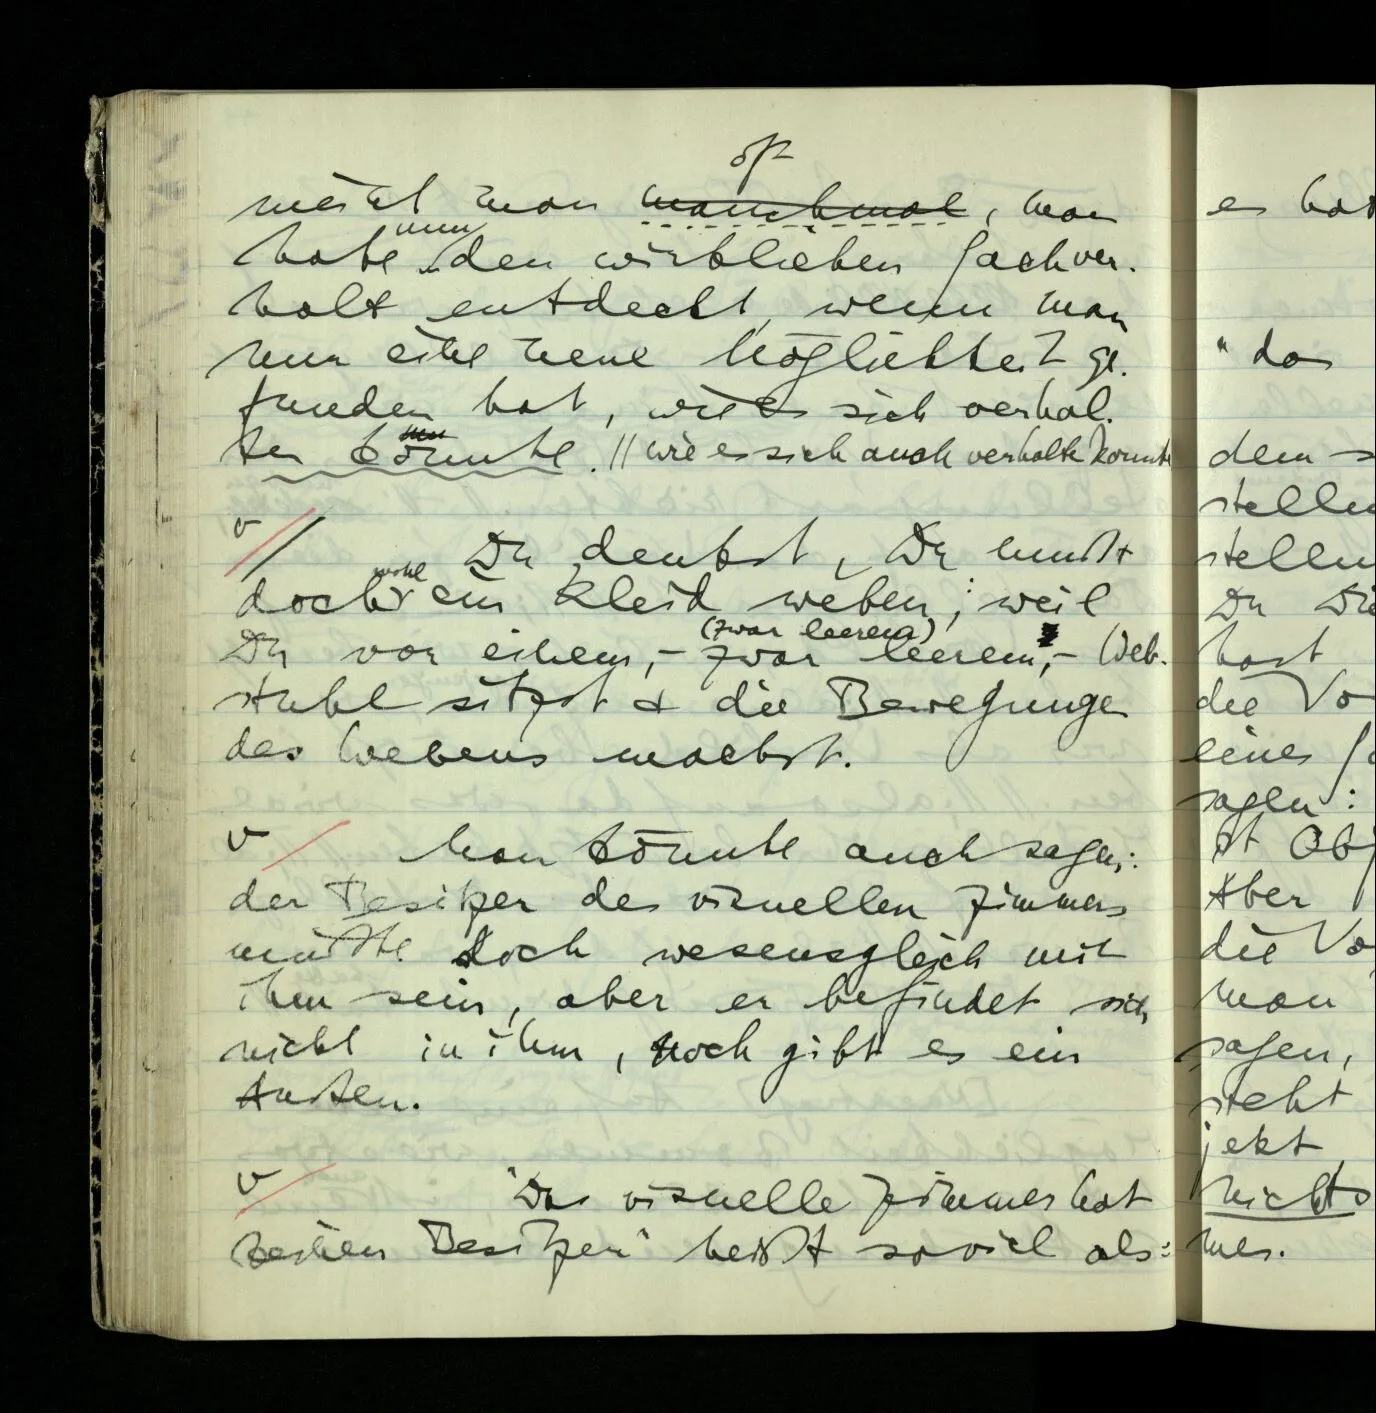 oft
meint man manchmal, man
habe nun den wirklichen Sachver-
halt entdeckt, wenn man
nur eine neue Möglichkeit ge-
funden hat, wie es sich verhal-
ten könnte. // wie es sich auch verhalten könnte
v // Du denkst, Du mußt
doch wohl ein Kleid weben; weil
(zwar leeren)
Du vor einem, – zwar leerem, – Web-
stuhl sitzt & die Bewegungen
des Webens machst.
v / Man könnte auch sagen:
der Besitzer des visuellen Zimmers
müßte doch wesensgleich mit
ihm sein, aber er befindet sich
nicht in ihm, noch gibt es ein
Außen.
v / "Das visuelle Zimmer hat
keinen Besitzer" heißt soviel als:
es hat
"das
dem
stellen
stellen
Du Die
hast
die Vo
eines
sagen:
ist Obj
Aber
die Vo
man
sagen,
steht
jekt
nichts
mer.